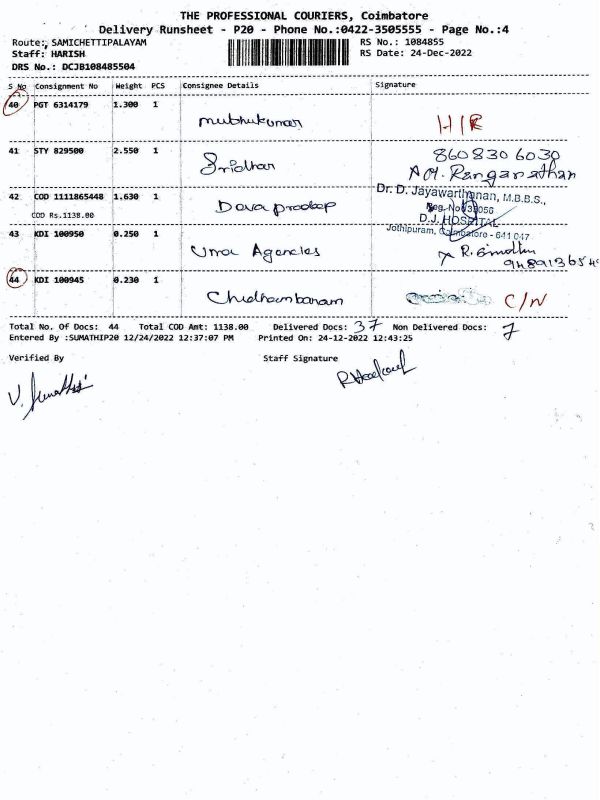 THE PROFESSIONAL COURIERS, Coimbatore
Delivery Runsheet - P20 - Phone No.:0422-3505555 - Page No.:4
Route: SAMICHETTIPALAYAM
RS No.: 1084855
Staff: HARISH
RS Date: 24-Dec-2022
DRS No.: DCJB108485504
S No Consignment No Weight PCS Consignee Details Signature
40 PGT 6314179 1.300 1
muthukumar H/R
41 STY 829500 2.550 1 860830 6030
Sridhar A.M. Ranganathan
42 COD 1111865448 1.630 1 Dr. D. Jayawarthanan, M.B.B.S.,
Deva pradeep Reg. No 39056
COD Rs.1138.00 D.J. HOSPITAL
43 KDI 100950 0.250 1 Jothipuram, Coimbatore - 641 047
Uma Agencies
44 KDI 100945 0.230 1
Chidhambaram C/N
Total No. Of Docs: 44 Total COD Amt: 1138.00 Delivered Docs: 37 Non Delivered Docs: 7
Entered By :SUMATHIP20 12/24/2022 12:37:07 PM Printed On: 24-12-2022 12:43:25
Verified By Staff Signature